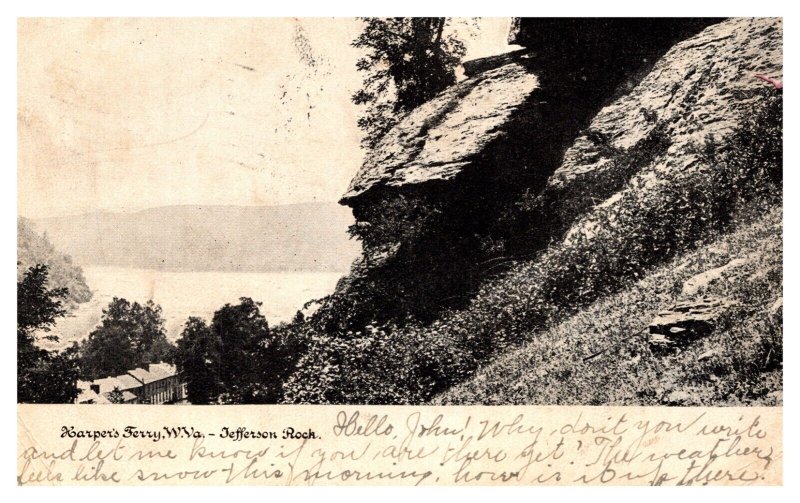 Harper's Ferry, W. Va. - Jefferson Rock. Hello, John! Why don't you write
and let me know if you are there yet? The weather
feels like snow this morning, how is it up there?